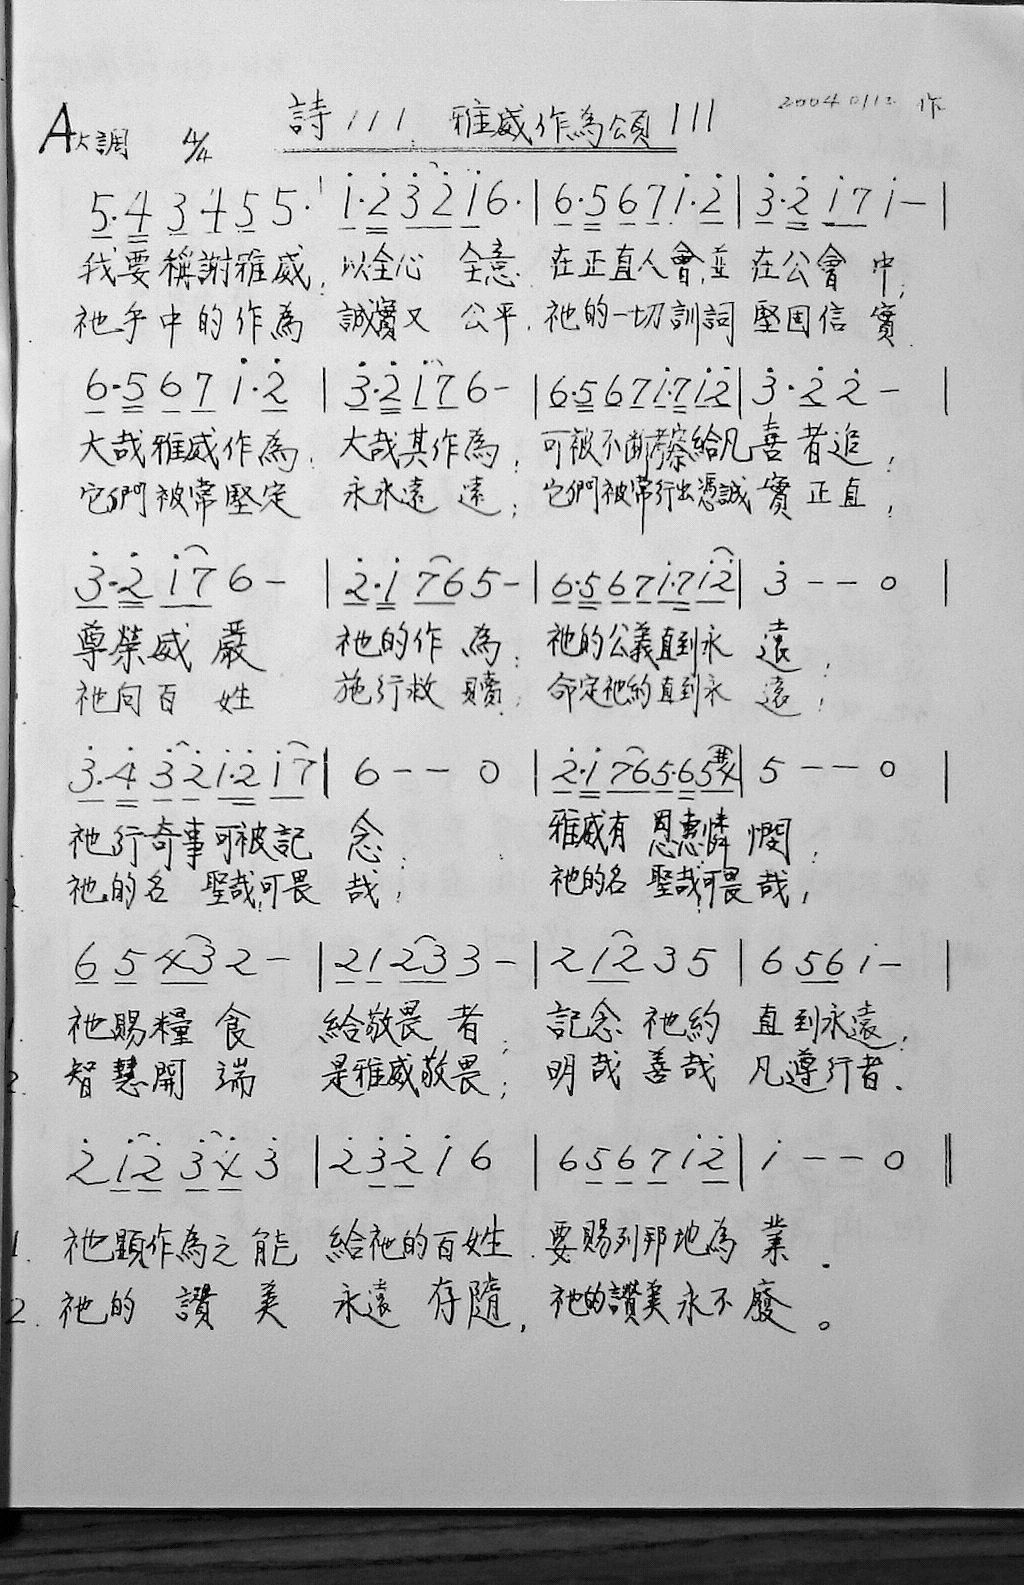 詩111 雅威作為頌111 2004 01 12 作
A大調 4/4
5·4 3 4 5 5· | i·2̇ 3̇ 2̇ i 6· | 6·5 6 7 i·2̇ | 3̇·2̇ i 7 i – |
我要稱謝雅威, 以全心 全意. 在正直人會,並 在公會 中;
祂手中的作為 誠實又 公平. 祂的一切訓詞 堅固信 實.
6·5 6 7 i·2̇ | 3̇·2̇ i 7 6 – | 6·5 6 7 i·7 i 2̇ | 3̇·2̇ 2̇ – |
大哉雅威作為. 大哉其作為, 可被不斷考察給凡 喜 者追,
它們被常堅定 永永遠 遠; 它們被常行出憑誠 實 正直,
3̇·2̇ i 7 6 – | 2̇·i 7 6 5 – | 6·5 6 7 i·7 i 2̇ | 3̇ – – 0 |
尊榮威 嚴 祂的作 為; 祂的公義直到永 遠,
祂向百 姓 施行救 贖, 命定祂約直到永 遠,
3̇·4̇ 3̇ 2̇ i·2̇ i 7 | 6 – – 0 | 2̇·i 7 6 5·6 5 #4 | 5 – – 0 |
祂行奇事可被記 念; 雅威有 恩惠憐 憫,
祂的名 聖哉,可畏 哉, 祂的名 聖哉,可畏 哉,
6 5 4 3 2 – | 2 1 2 3 3 – | 2 1 2 3 5 | 6 5 6 i – |
祂賜糧 食 給敬畏 者; 記念 祂約 直到永遠;
2. 智慧開 端 是雅威敬畏; 明哉 善哉 凡遵行者.
2̇ i 2̇ 3̇ 4̇ 3̇ | 2̇ 3̇ 2̇ i 6 | 6 5 6 7 i 2̇ | i – – 0 ‖
1. 祂顯作為之 能 給祂的百姓. 要賜列邦地為 業.
2. 祂的 讚 美 永遠 存隨, 祂的讚美永不 廢。